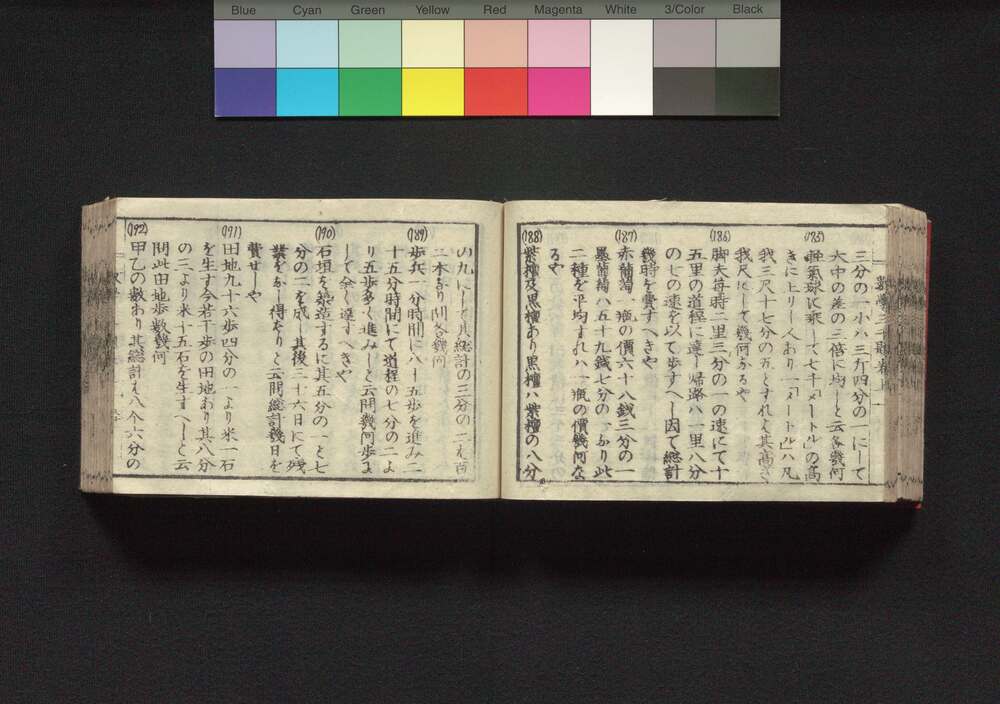 Blue Cyan Green Yellow Red Magenta White 3/Color Black
三分の一小ハ三斤四分の一にして
大中の差の三倍に均しと云各幾何
(185)
軽氣球に乗して七千メートルの高
きに上りし人あり一メートルハ凡
我三尺十七分の五とすれハ其高さ
我尺にして幾何なるや
(186)
脚夫毎時二里三分の一の速にて十
五里の道程に達し帰路ハ一里八分
の七の速を以て歩すへし因て総計
幾時を費すへきや
(187)
赤葡萄一瓶の價六十八銭三分の一
墨葡萄ハ五十九銭七分の一なり此
二種を平均すれハ一瓶の價幾何な
るや
(188)
紫檀及黒檀あり黒檀ハ紫檀の八分
の九にして其総計の三分の二ハ百
二本なり問各幾何
(189)
歩兵一分時間に八十五歩を進み二
十五分時間にて道程の七分の二よ
り五歩多く進みしと云問幾何歩に
して全く達すへきや
(190)
石垣を築造するに其五分の一と七
分の二を成し其後三十六日にて残
業をなし得たりと云問総計幾日を
費せしや
(191)
田地九十六歩四分の一より米一石
を生す今若干歩の田地あり其八分
の三より米十五石を生すへしと云
問此田地歩数幾何
(192)
甲乙の数あり其総計ハ八个六分の